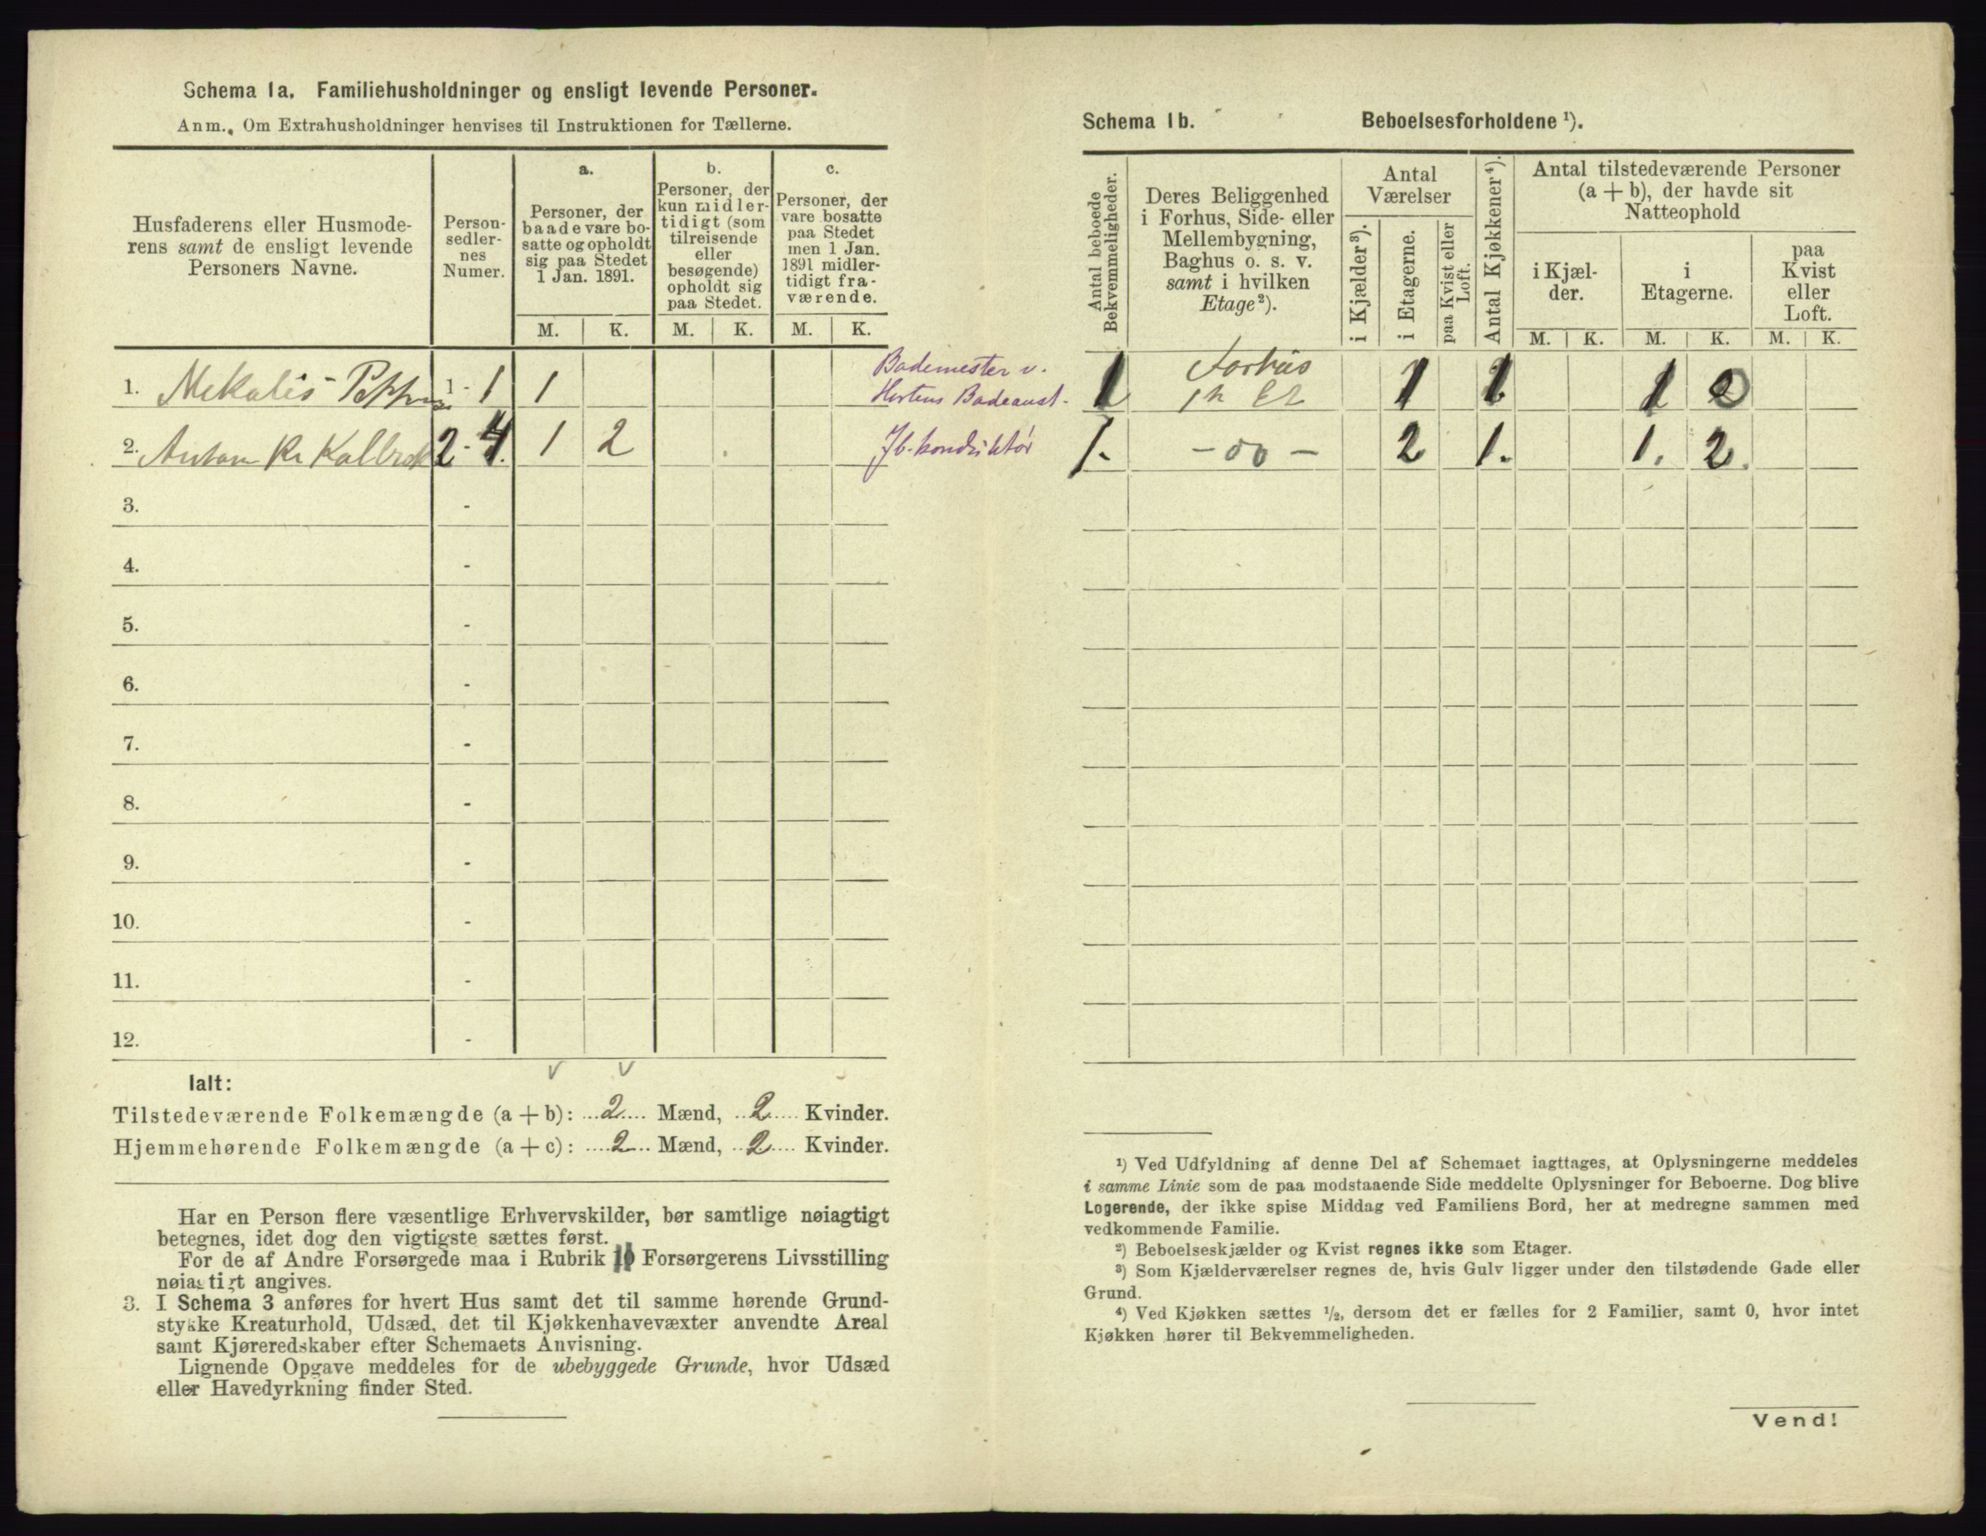 Schema 1a. Familiehusholdninger og ensligt levende Personer.
Anm. Om Extrahusholdninger henvises til Instruktionen for Tællerne.
Husfaderens eller Husmode-
rens samt de ensligt levende
Personers Navne.
Person-
sedler-
nes
Numer.
a.
Personer, der
baade vare bo-
satte og opholdt
sig paa Stedet
1 Jan. 1891.
b.
Personer, der
kun midler-
tidigt (som
tilreisende
eller
besøgende)
opholdt sig
paa Stedet.
c.
Personer, der
vare bosatte
paa Stedet
men 1 Jan.
1891 midler-
tidigt fra-
værende.
M. K. M. K. M. K.
1. Mekalis 1 - 1 1 Bademester v.
Hortens Badeanst.
2. Anton Kr 2 - 4. 1 2 Jb. konduktør
3. -
4. -
5. -
6. -
7. -
8. -
9. -
10. -
11. -
12. -
Ialt:
Tilstedeværende Folkemængde (a + b): 2 Mænd, 2 Kvinder.
Hjemmehørende Folkemængde (a + c): 2 Mænd, 2 Kvinder.
Har en Person flere væsentlige Erhvervskilder, bør samtlige nøiagtigt
betegnes, idet dog den vigtigste sættes først.
For de af Andre Forsørgede maa i Rubrik 10 Forsørgerens Livsstilling
nøiagtigt angives.
3. I Schema 3 anføres for hvert Hus samt det til samme hørende Grund-
stykke Kreaturhold, Udsæd, det til Kjøkkenhavevæxter anvendte Areal
samt Kjøreredskaber efter Schemaets Anvisning.
Lignende Opgave meddeles for de ubebyggede Grunde, hvor Udsæd
eller Havedyrkning finder Sted.
Schema 1b. Beboelsesforholdene ¹).
Antal beboede
Bekvemmeligheder.
Deres Beliggenhed
i Forhus, Side- eller
Mellembygning,
Baghus o. s. v.
samt i hvilken
Etage²).
Antal
Værelser
i Kjælder³).
i Etagerne.
paa Kvist eller
Loft.
Antal Kjøkkener⁴).
Antal tilstedeværende Personer
(a + b), der havde sit
Natteophold
i Kjæl-
der.
i
Etagerne.
paa
Kvist
eller
Loft.
M. K. M. K. M. K.
1 Forhus 1 1 1 0
1. - 2 1. 1. 2.
¹) Ved Udfyldning af denne Del af Schemaet iagttages, at Oplysningerne meddeles
i samme Linie som de paa modstaaende Side meddelte Oplysninger for Beboerne. Dog blive
Logerende, der ikke spise Middag ved Familiens Bord, her at medregne sammen med
vedkommende Familie.
²) Beboelseskjælder og Kvist regnes ikke som Etager.
³) Som Kjælderværelser regnes de, hvis Gulv ligger under den tilstødende Gade eller
Grund.
⁴) Ved Kjøkken sættes ½, dersom det er fælles for 2 Familier, samt 0, hvor intet
Kjøkken hører til Bekvemmeligheden.
Vend!